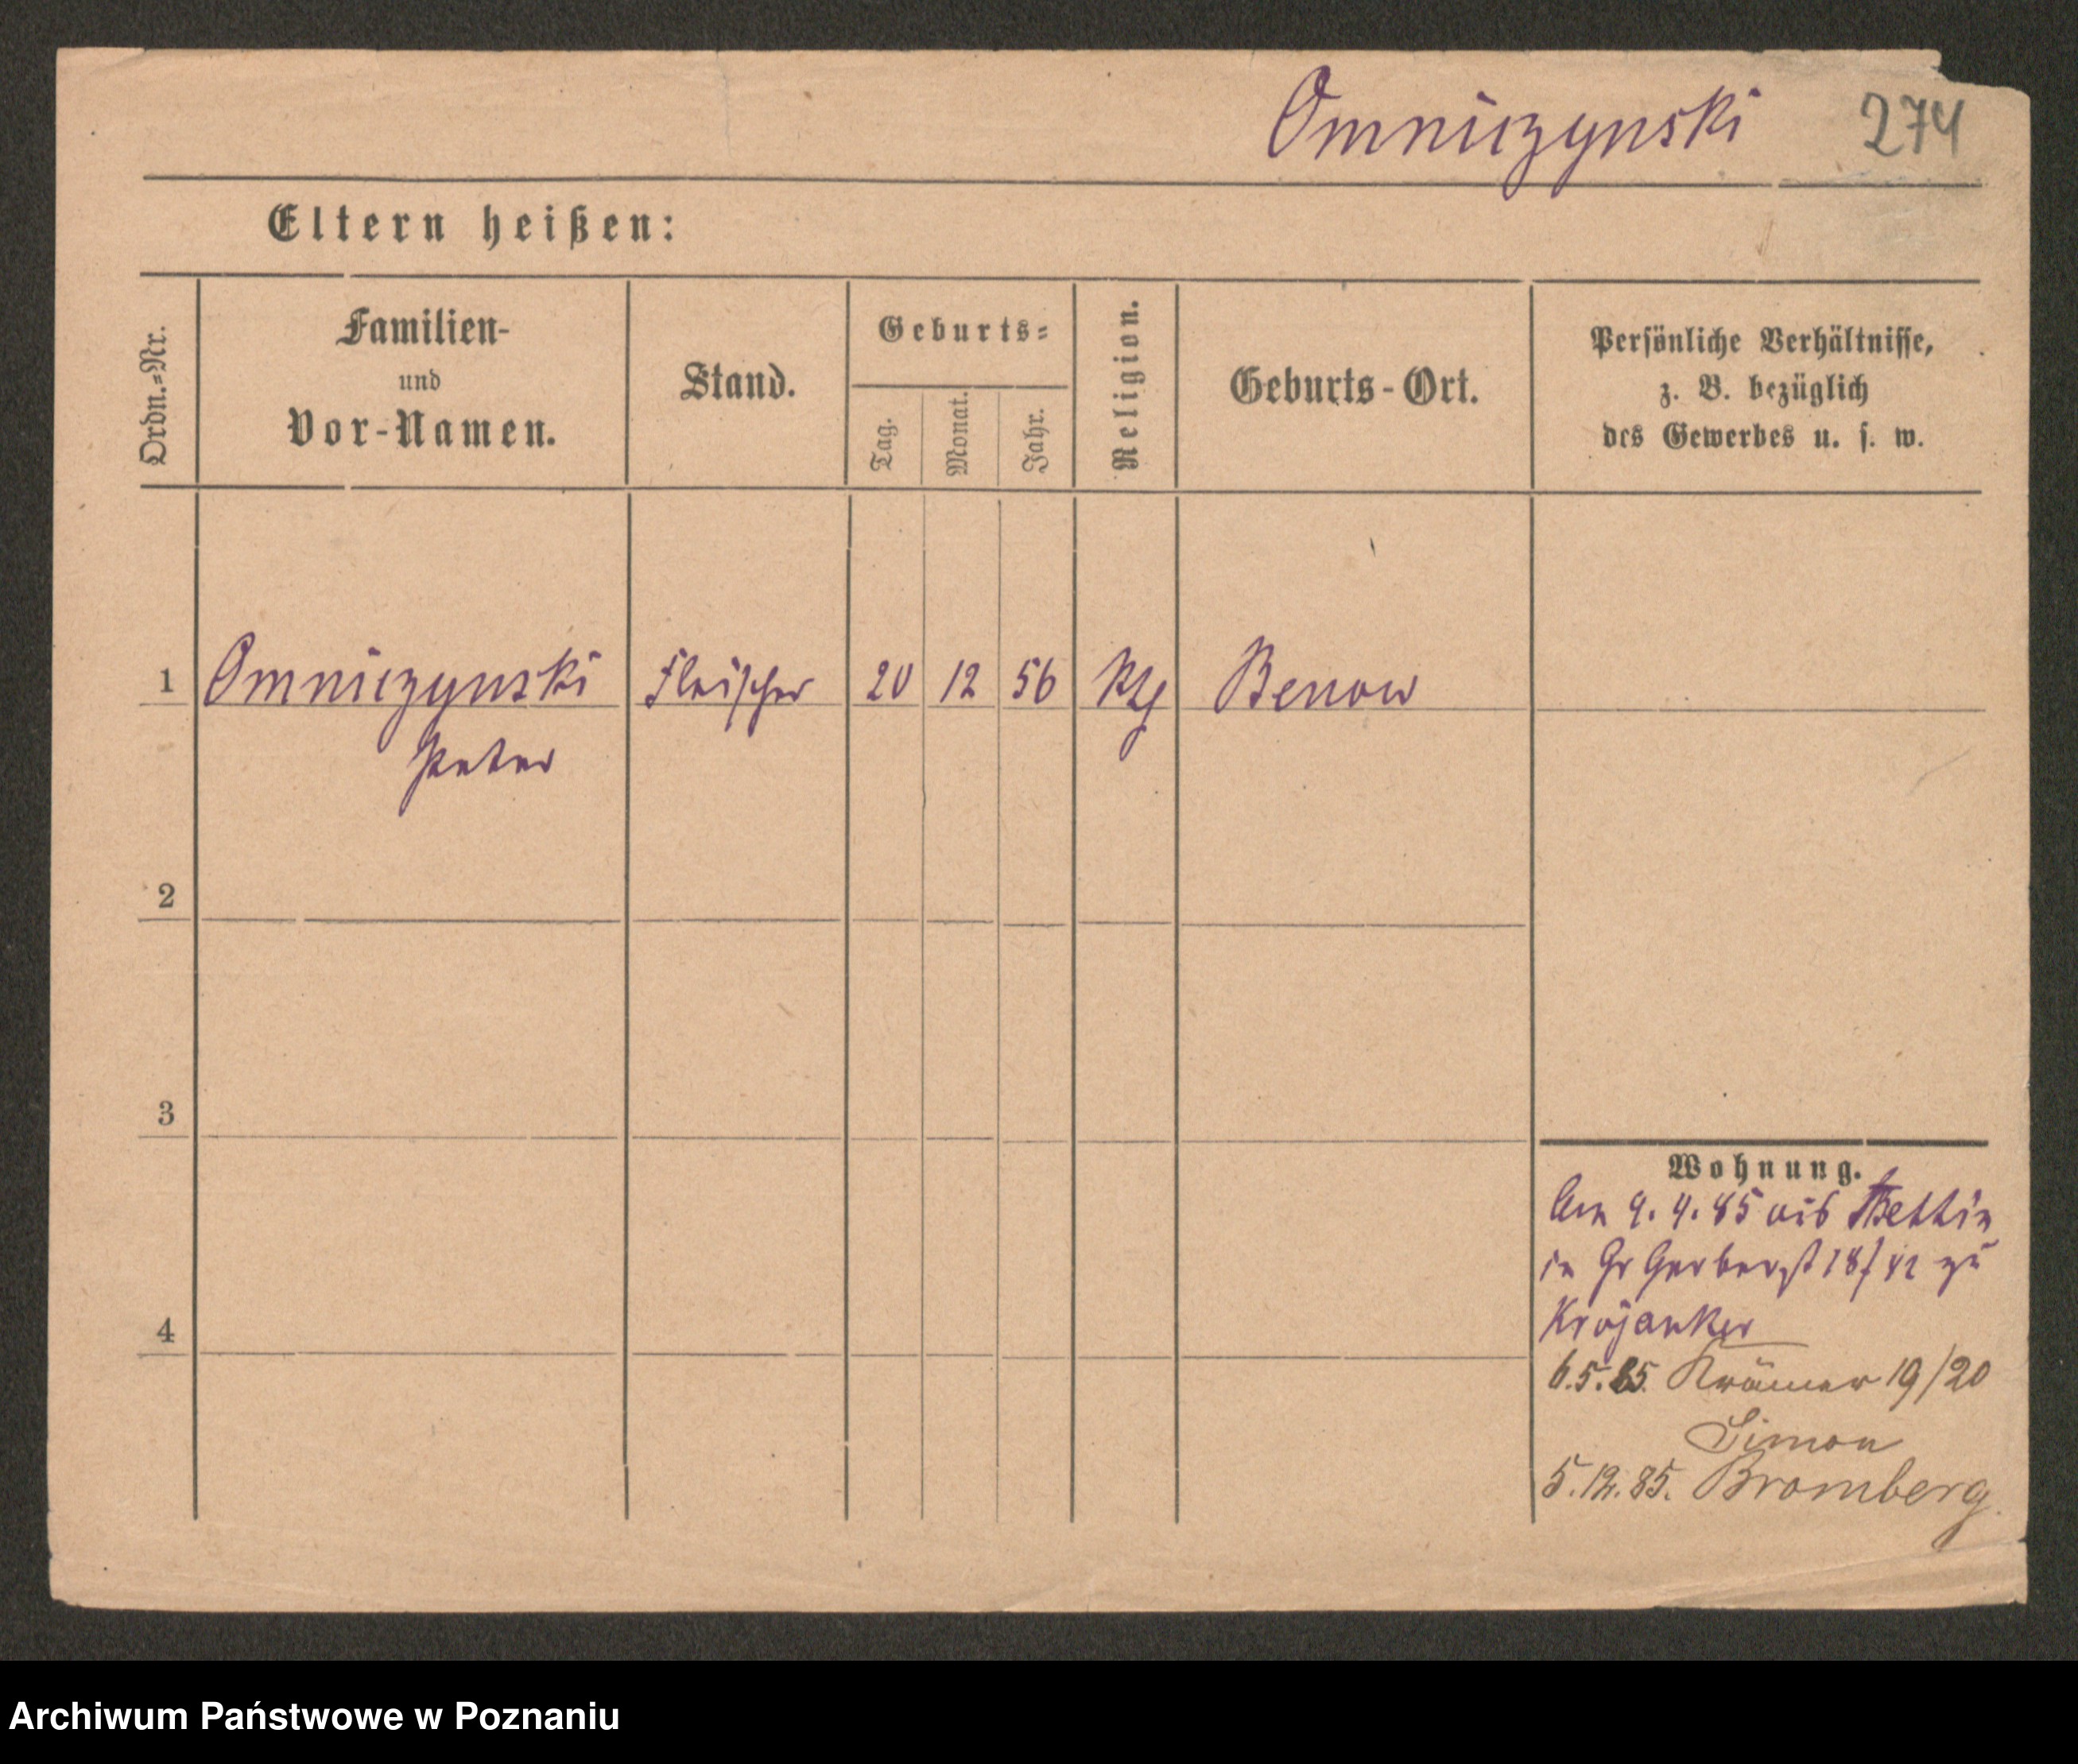 Omniczynski 274
Eltern heißen:
Ordn.-Nr.
Familien-
und
Vor-Namen.
Stand.
Geburts-
Tag.
Monat.
Jahr.
Religion.
Geburts-Ort.
Persönliche Verhältnisse,
z. B. bezüglich
des Gewerbes u. s. w.
1 Omniczynski Fleischer 20 12 56 Benow
Peter
2
3
4
Wohnung.
Am 9. 4. 85 aus
in Gr Gerberst 18/ zu
Krojanker
6.5.85. Krämer 19/20
Simon
5.12.85. Bromberg.
Archiwum Państwowe w Poznaniu